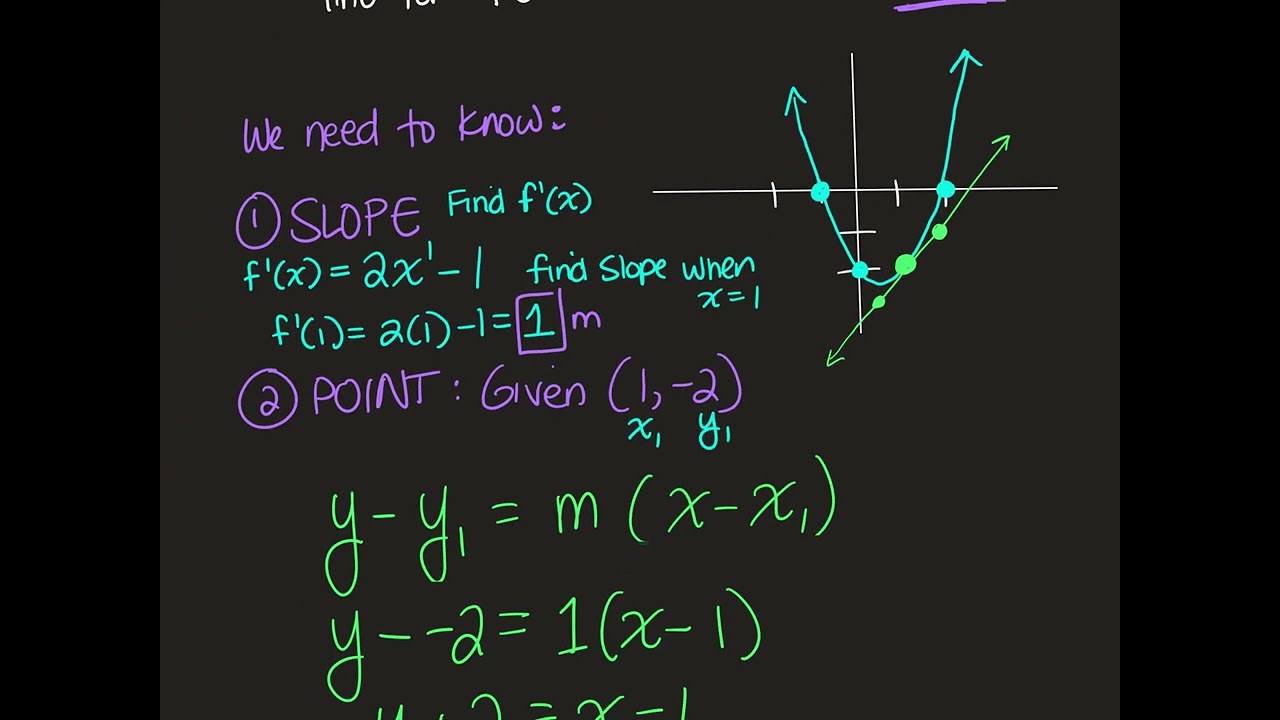 We need to know:
① SLOPE Find f'(x)
f'(x) = 2x¹ - 1 find slope when
x = 1
f'(1) = 2(1) - 1 = 1 m
② POINT: Given (1, -2)
x₁ y₁
y - y₁ = m (x - x₁)
y - -2 = 1(x - 1)
y + 2 = x - 1